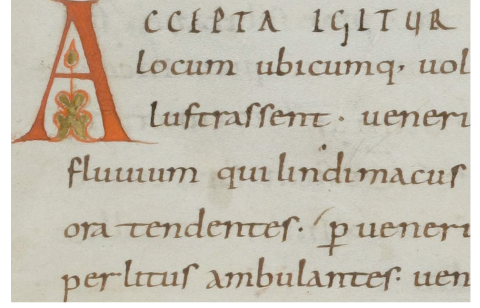 ACCEPTA IGITUR
locum ubicumq· uol
luſtraſſent · ueneri
fluuium qui lindimacus
ora tendentes· p̱ueneri
perlitus ambulantes· uen